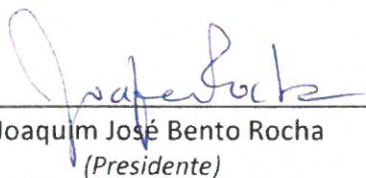 Joaquim José Bento Rocha
(Presidente)